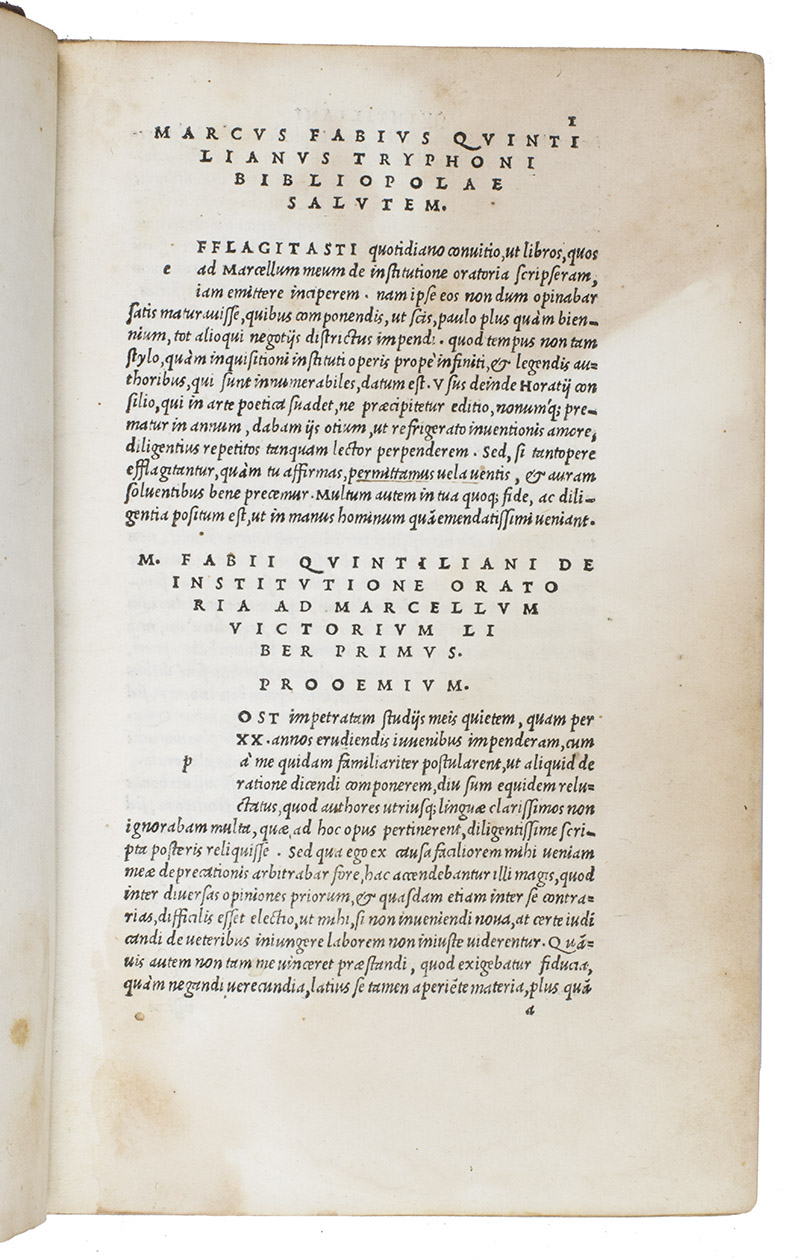 1
MARCVS FABIVS QVINTI
LIANVS TRYPHONI
BIBLIOPOLAE
SALVTEM.
FFLAGITASTI quotidiano conuitio, ut libros, quos
e ad Marcellum meum de institutione oratoria scripseram,
iam emittere inciperem. nam ipse eos non dum opinabar
satis maturuisse, quibus componendis, ut scis, paulo plus quàm bien-
nium, tot alioqui negotijs districtus impendi. quod tempus non tam
stylo, quàm inquisitioni instituti operis propè infiniti, & legendis au-
thoribus, qui sunt innumerabiles, datum est. Vsus deinde Horatij con
silio, qui in arte poetica suadet, ne præcipitetur editio, nonumq; pre-
matur in annum, dabam ijs otium, ut refrigerato inuentionis amore,
diligentius repetitos tanquam lector perpenderem. Sed, si tantopere
efflagitantur, quàm tu affirmas, permittamus uela uentis, & auram
soluentibus bene precemur. Multum autem in tua quoq; fide, ac dili-
gentia positum est, ut in manus hominum quā emendatissimi ueniant.
M. FABII QVINTILIANI DE
INSTITVTIONE ORATO
RIA AD MARCELLVM
VICTORIVM LI
BER PRIMVS.
PROOEMIVM.
OST impetratam studijs meis quietem, quam per
XX. annos erudiendis iuuenibus impenderam, cum
p à me quidam familiariter postularent, ut aliquid de
ratione dicendi componerem, diu sum equidem relu-
ctatus, quod authores utriusq; linguæ clarissimos non
ignorabam multa, quæ ad hoc opus pertinerent, diligentissime scri-
pta posteris reliquisse. Sed qua ego ex causa faciliorem mihi ueniam
meæ deprecationis arbitrabar fore, hac accendebantur illi magis, quod
inter diuersas opiniones priorum, & quasdam etiam inter se contra-
rias, difficilis esset electio, ut mihi, si non inueniendi noua, at certe iudi
candi de ueteribus iniungere laborem non iniuste uiderentur. Quā-
uis autem non tam me uinceret præstandi, quod exigebatur fiducia,
quàm negandi uerecundia, latius se tamen aperiēte materia, plus quā
a